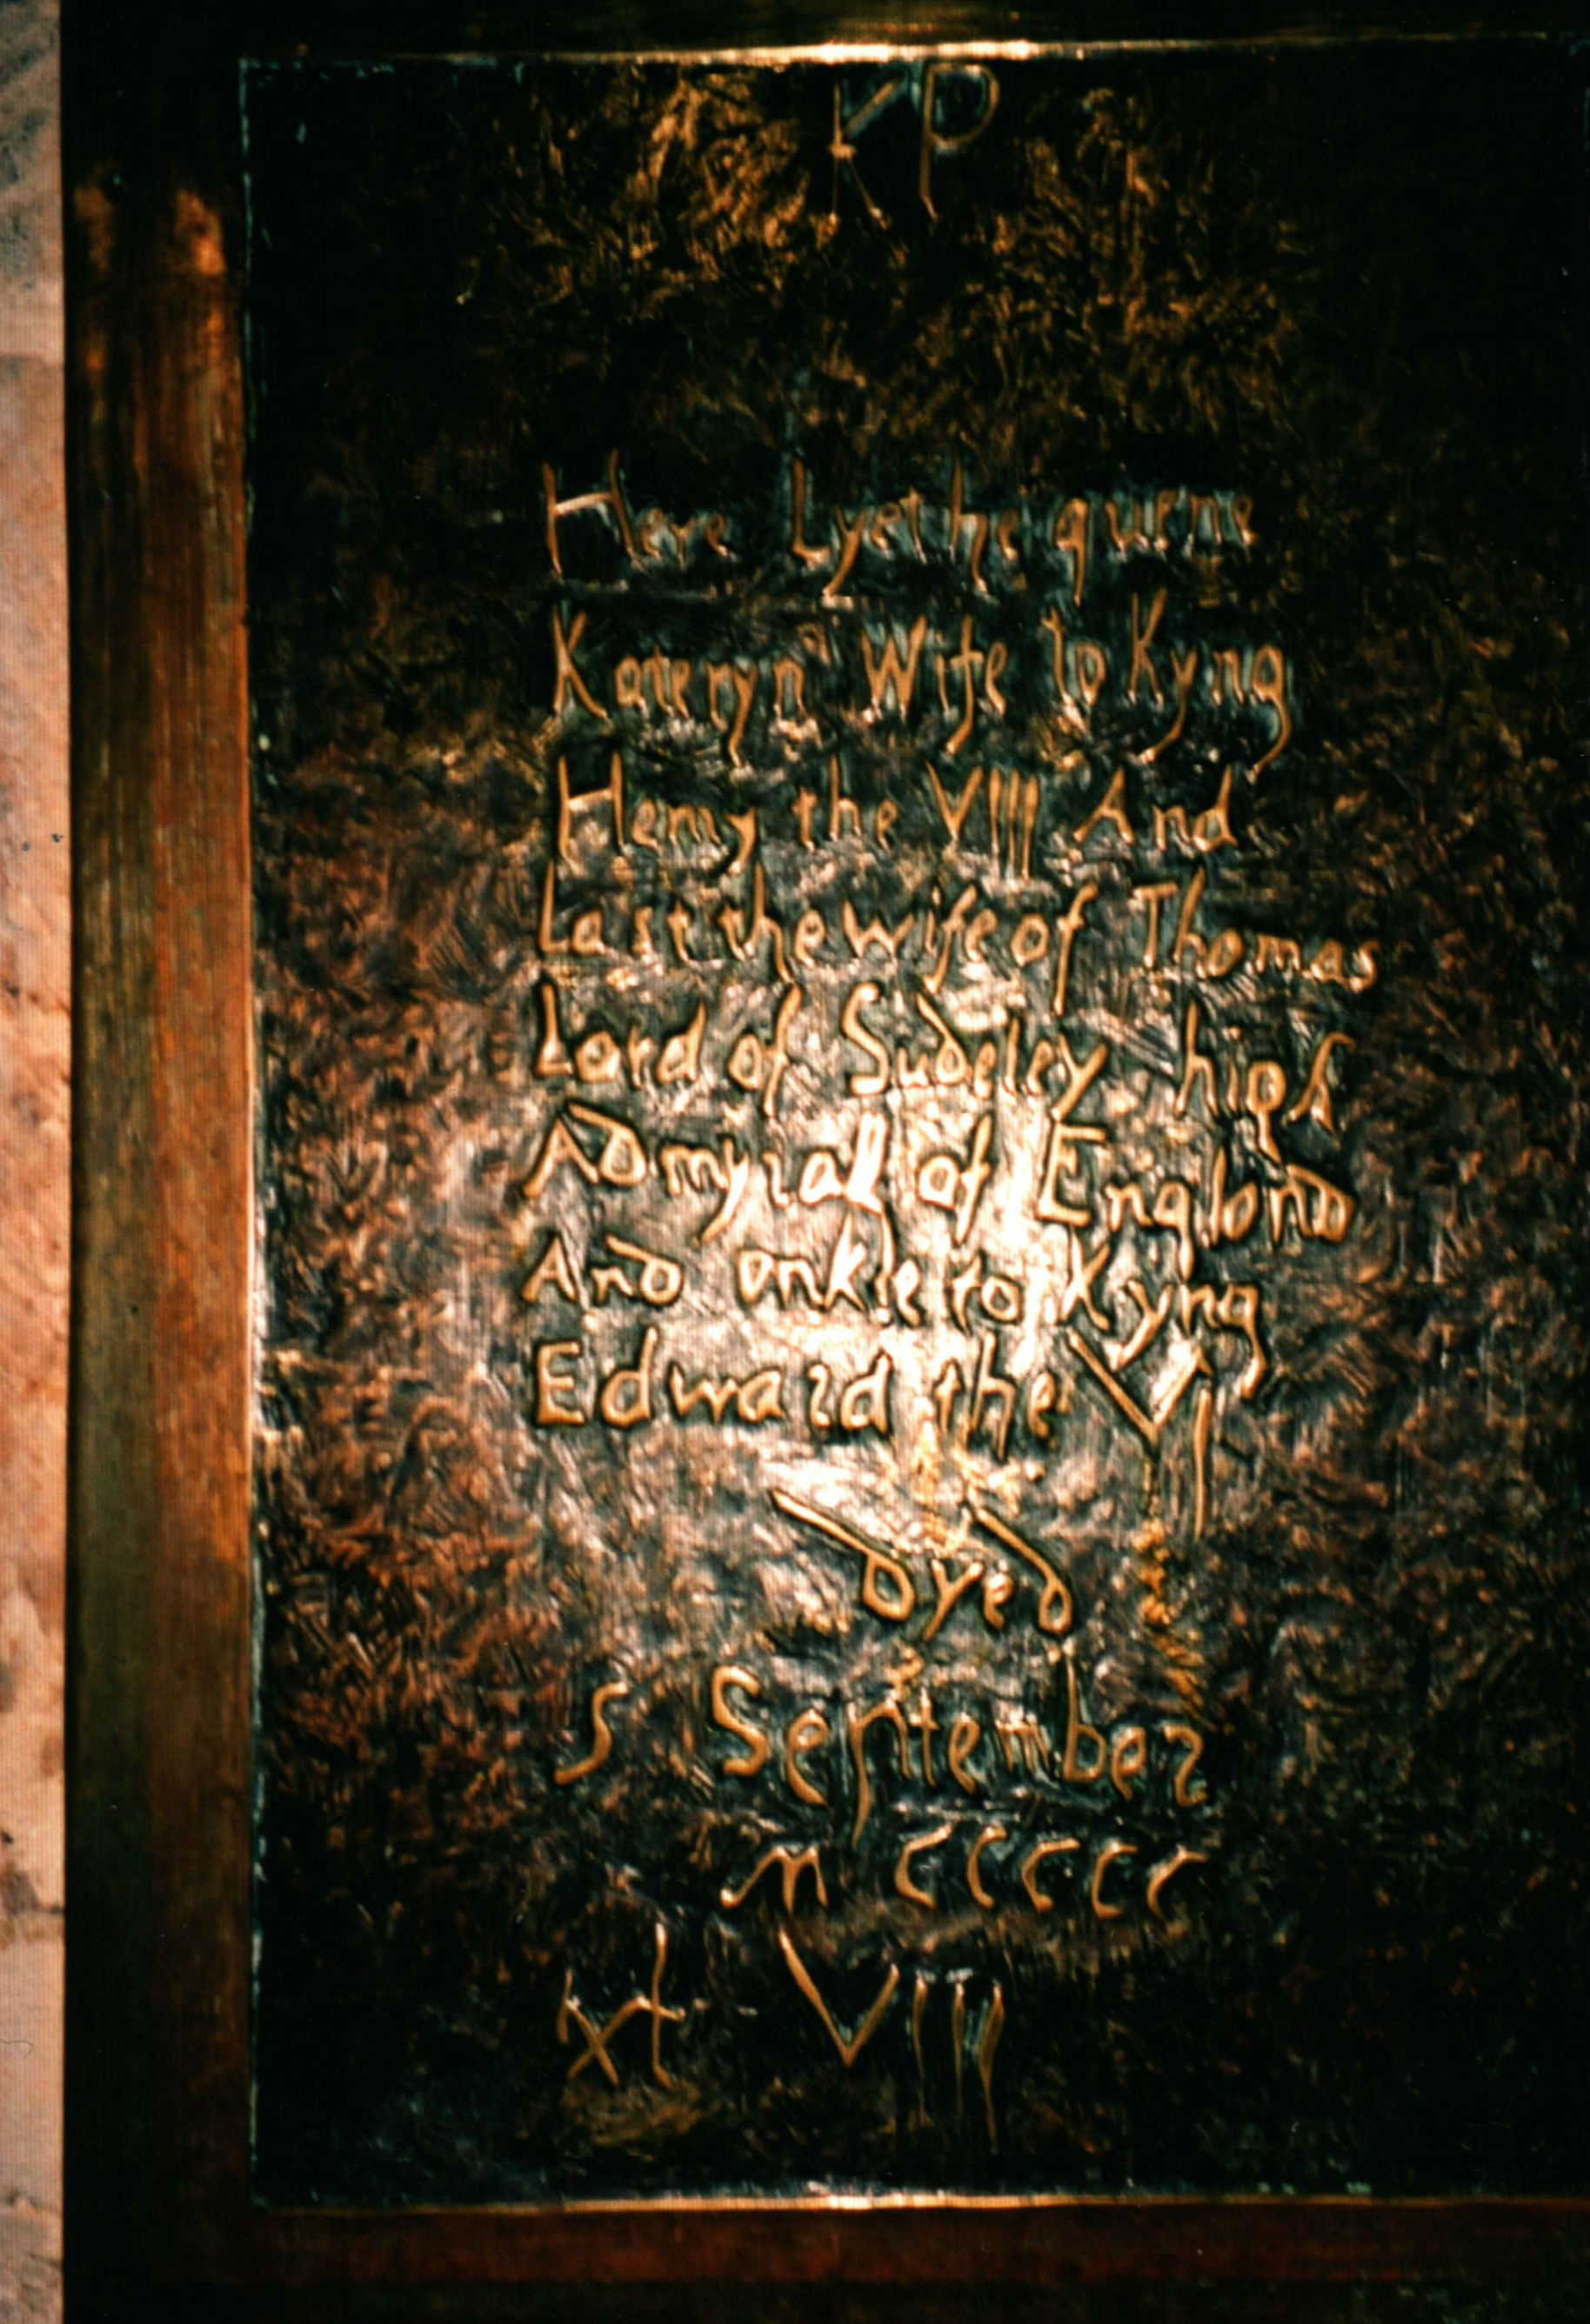 KP
Here Lyethe quene
Kateryn Wife to Kyng
Henry the VIII And
Last the wife of Thomas
Lord of Sudeley high
Admyrall of Englond
And onkle to Kyng
Edward the VI
dyed
5 September
MCCCCC
xl VIII